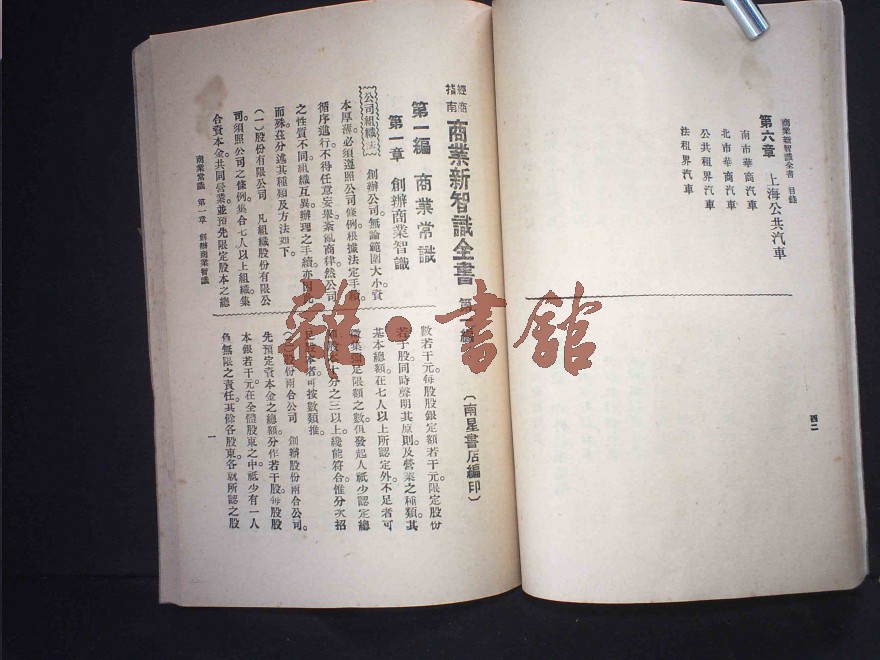 商業新智識全書 目錄
第六章 上海公共汽車
南市華商汽車
北市華商汽車
公共租界汽車
法租界汽車
四二
經商指南
商業新智識全書 第一編
(南星書店編印)
第一編 商業常識
第一章 創辦商業智識
公司組織法 創辦公司。無論範圍大小。資
本厚薄。必須遵照公司條例。根據法定手續。
循序進行。不得任意妄舉。紊亂商律。然公司
之性質不同。組織互異。辦理之手續。亦因此
而殊。茲分述其種類及方法如下。
(一)股份有限公司 凡組織股份有限公
司。須照公司之條例。集合七人以上組織。集
合資本金共同營業。並預先限定股本之總
數若干元。每股股銀定額若干元。限定股份
若干股。同時聲明其原則及營業之種類。其
基本總額。在七人以上所認定外。不足者可
徵集彌足限額之數。但發起人祇少認定總
股十分之三以上。纔能符合。惟分次招
足股本者。可按數類推。
股份兩合公司 創辦股份兩合公司。
先預定資本金之總額。分作若干股。每股股
本銀若干元。在全體股東之中。祇少有一人
負無限之責任。其餘各股東。各就所認之股
商業常識 第一章 創辦商業智識
一
雜·書館